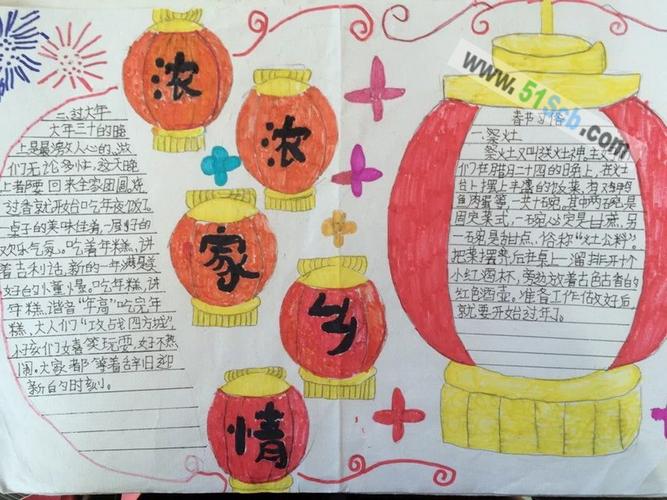 浓
浓
家
乡
情
二、过大年
大年三十的晚
上是最激动人心的，故
们无论多忙，这天晚
上都要回来全家团圆，烧
过香就开始吃年夜饭了。
一桌子的美味佳肴，一屋子的
欢乐气氛。吃着年糕，讲
着吉利话，新的一年满是
好白的小量景。吃年糕，讲
年糕，谐音“年高”吃完年
糕，大人们“攻占四方城”，
小孩们嬉笑玩耍，好不热
闹。大家都等着辞旧迎
新的时刻。
www.51Scb.com
春节习俗
一、祭灶
祭灶又叫送灶神。主人
们在腊月二十四的日各上，在灶
台上摆上丰盛的饭菜，有鸡鸭
鱼肉蛋等，一共十碗，其中两碗是
固定菜式，一碗必定是甘蔗，另
一碗是甜点，俗称“灶公料”。
把菜摆齐后在桌上一溜排开十个
小红酒杯，旁边放着古色古香的
红色酒壶。准备工作做好后，
就要开始过年了。